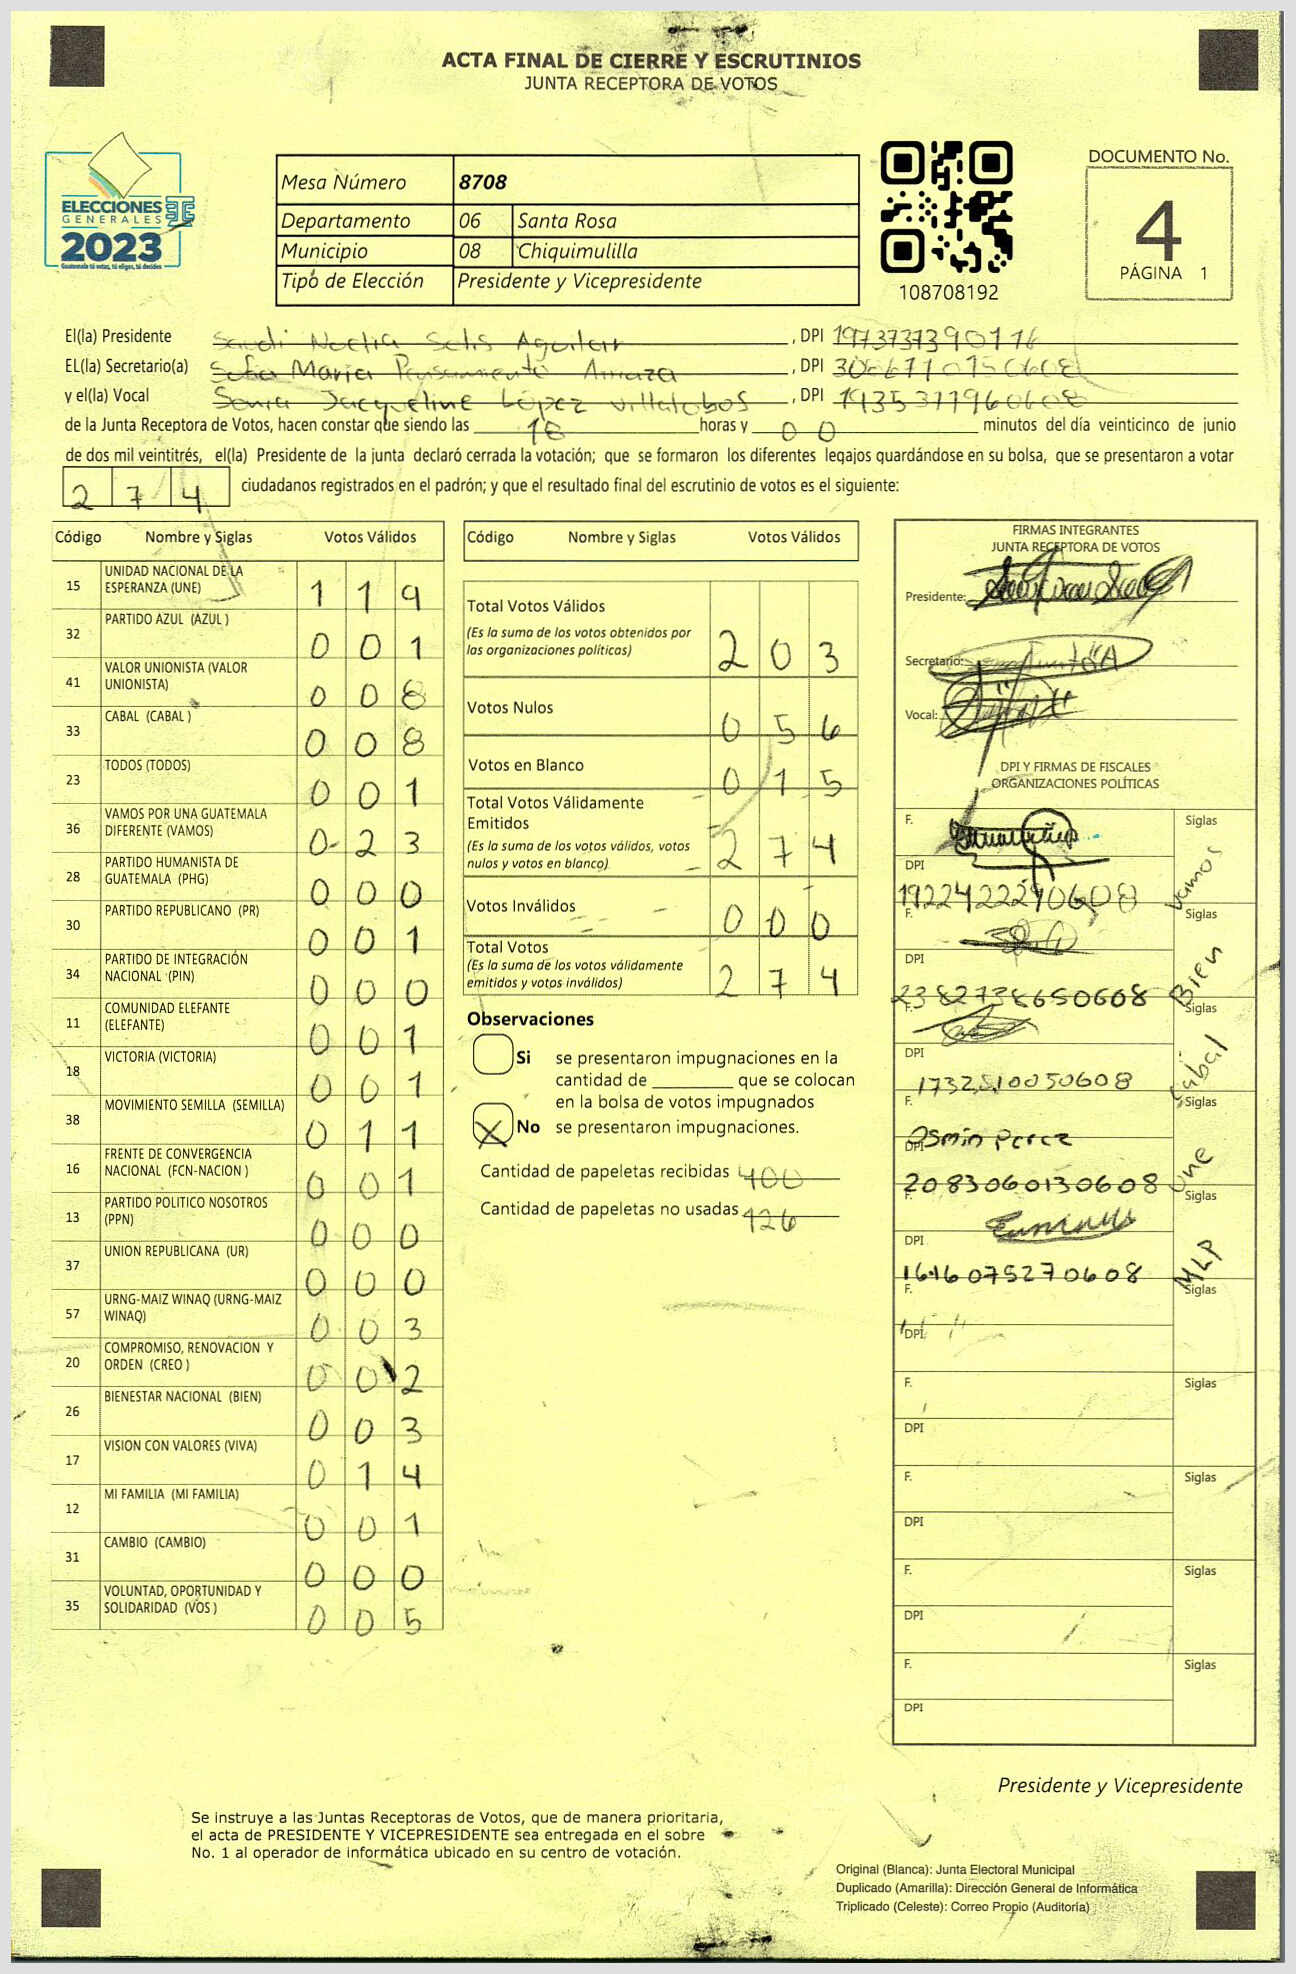 ACTA FINAL DE CIERRE Y ESCRUTINIOS
JUNTA RECEPTORA DE VOTOS
ELECCIONES
GENERALES
2023
Guatemala tú votas, tú eliges, tú decides
Mesa Número 8708
Departamento 06 Santa Rosa
Municipio 08 Chiquimulilla
Tipo de Elección Presidente y Vicepresidente
108708192
DOCUMENTO No.
4
PÁGINA 1
El(la) Presidente Noelia Solis Aguilar, DPI
EL(la) Secretario(a) Sofia Maria Pensamiento, DPI
y el(la) Vocal Sonia Jacqueline López Villalobos, DPI 1935377960608
de la Junta Receptora de Votos, hacen constar que siendo las 18 horas y 00 minutos del día veinticinco de junio
de dos mil veintitrés, el(la) Presidente de la junta declaró cerrada la votación; que se formaron los diferentes legajos quardándose en su bolsa, que se presentaron a votar
274 ciudadanos registrados en el padrón; y que el resultado final del escrutinio de votos es el siguiente:
Código Nombre y Siglas Votos Válidos
15 UNIDAD NACIONAL DE LA ESPERANZA (UNE) 1 1 9
32 PARTIDO AZUL (AZUL ) 0 0 1
41 VALOR UNIONISTA (VALOR UNIONISTA) 0 0 8
33 CABAL (CABAL ) 0 0 8
23 TODOS (TODOS) 0 0 1
36 VAMOS POR UNA GUATEMALA DIFERENTE (VAMOS) 0 2 3
28 PARTIDO HUMANISTA DE GUATEMALA (PHG) 0 0 0
30 PARTIDO REPUBLICANO (PR) 0 0 1
34 PARTIDO DE INTEGRACIÓN NACIONAL (PIN) 0 0 0
11 COMUNIDAD ELEFANTE (ELEFANTE) 0 0 1
18 VICTORIA (VICTORIA) 0 0 1
38 MOVIMIENTO SEMILLA (SEMILLA) 0 1 1
16 FRENTE DE CONVERGENCIA NACIONAL (FCN-NACION ) 0 0 1
13 PARTIDO POLITICO NOSOTROS (PPN) 0 0 0
37 UNION REPUBLICANA (UR) 0 0 0
57 URNG-MAIZ WINAQ (URNG-MAIZ WINAQ) 0 0 3
20 COMPROMISO, RENOVACION Y ORDEN (CREO ) 0 0 2
26 BIENESTAR NACIONAL (BIEN) 0 0 3
17 VISION CON VALORES (VIVA) 0 1 4
12 MI FAMILIA (MI FAMILIA) 0 0 1
31 CAMBIO (CAMBIO) 0 0 0
35 VOLUNTAD, OPORTUNIDAD Y SOLIDARIDAD (VOS ) 0 0 5
Código Nombre y Siglas Votos Válidos
Total Votos Válidos 2 0 3
(Es la suma de los votos obtenidos por
las organizaciones políticas)
Votos Nulos 0 5 6
Votos en Blanco 0 1 5
Total Votos Válidamente
Emitidos 2 7 4
(Es la suma de los votos válidos, votos
nulos y votos en blanco)
Votos Inválidos 0 0 0
Total Votos 2 7 4
(Es la suma de los votos válidamente
emitidos y votos inválidos)
Observaciones
Si se presentaron impugnaciones en la
cantidad de ________ que se colocan
en la bolsa de votos impugnados
X No se presentaron impugnaciones.
Cantidad de papeletas recibidas 400
Cantidad de papeletas no usadas 126
FIRMAS INTEGRANTES
JUNTA RECEPTORA DE VOTOS
Presidente:
Secretario:
Vocal:
DPI Y FIRMAS DE FISCALES
ORGANIZACIONES POLÍTICAS
F. Siglas
DPI 1922422290608 Vamos
F. Siglas
DPI 2382738650608 Bien
F. Siglas
DPI 1732510050608 Cabal
F. Siglas
Osmin Perez
DPI 2083060130608 Une
F. Siglas
DPI 1616075270608 MLP
F. Siglas
DPI
F. Siglas
DPI
F. Siglas
DPI
F. Siglas
DPI
F. Siglas
DPI
Presidente y Vicepresidente
Se instruye a las Juntas Receptoras de Votos, que de manera prioritaria,
el acta de PRESIDENTE Y VICEPRESIDENTE sea entregada en el sobre
No. 1 al operador de informática ubicado en su centro de votación.
Original (Blanca): Junta Electoral Municipal
Duplicado (Amarilla): Dirección General de Informática
Triplicado (Celeste): Correo Propio (Auditoría)